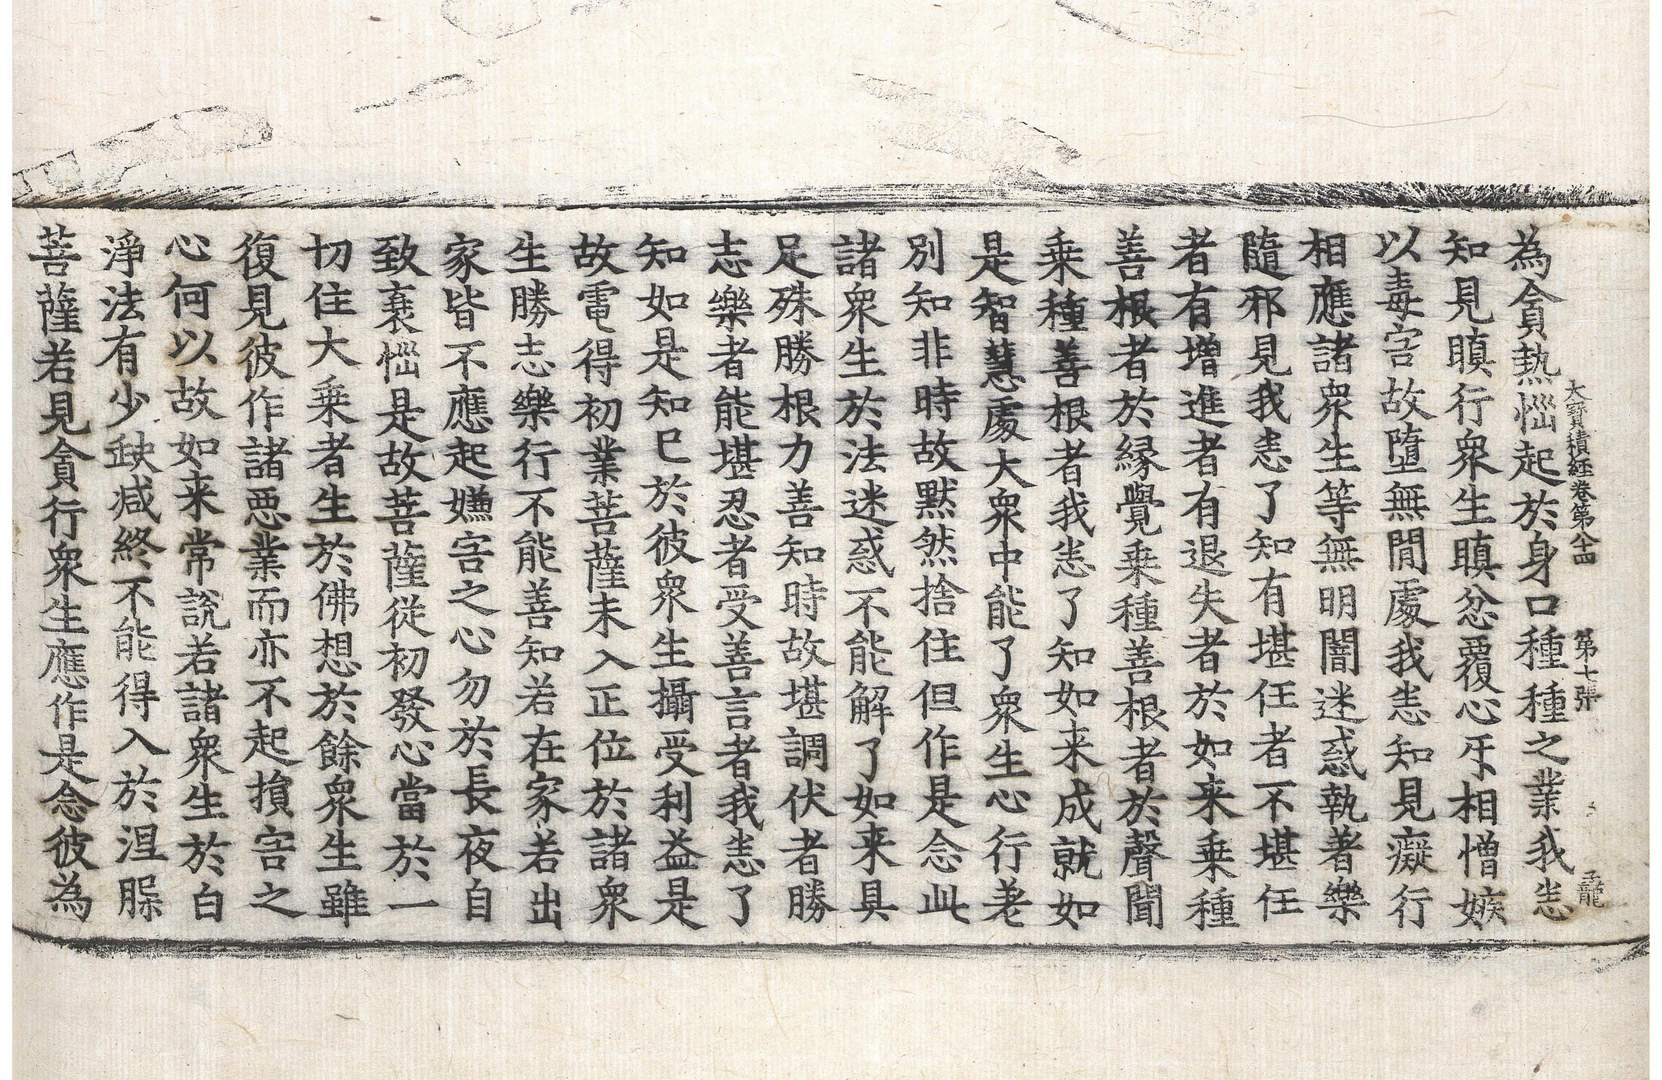 大寶積經卷第八十四　第七張　龍
為貪熱惱起於身口種種之業我悉
知見瞋行衆生瞋忿覆心牙相憎嫉
以毒害故墮無間處我悉知見癡行
相應諸衆生等無明闇迷惑執著樂
隨邪見我悉了知有堪任者不堪任
者有增進者有退失者於如来乗種
善根者於縁覺乗種善根者於聲聞
乗種善根者我悉了知如来成就如
是智慧處大衆中能了衆生心行差
別知非時故默然捨住但作是念此
諸衆生於法迷惑不能解了如来具
足殊勝根力善知時故堪調伏者勝
志樂者能堪忍者受善言者我悉了
知如是知已於彼衆生攝受利益是
故電得初業菩薩未入正位於諸衆
生勝志樂行不能善知若在家若出
家皆不應起嫌害之心勿於長夜自
致衰惱是故菩薩從初發心當於一
切住大乗者生於佛想於餘衆生雖
復見彼作諸悪業而亦不起損害之
心何以故如来常說若諸衆生於白
淨法有少缺减終不能得入於涅槃
菩薩若見貪行衆生應作是念彼為